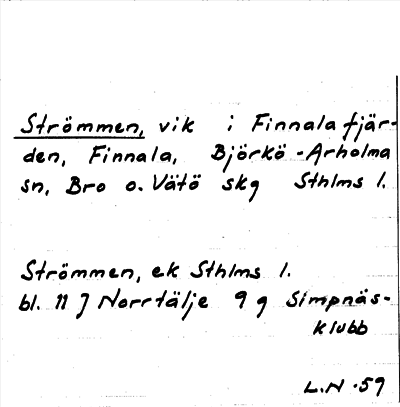 Strömmen, vik i Finnalafjär-
den, Finnala, Björkö-Arholma
sn, Bro o. Vätö skg Sthlms l.
Strömmen, ek Sthlms l.
bl. 11 J Norrtälje 9 g Simpnäs-
klubb
L.N -59